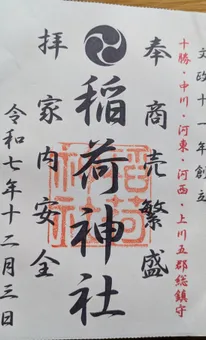 文政十一年創立
十勝・中川・河東・河西・上川五郡総鎮守
奉 商売繁盛
稲荷神社
拝 家内安全
令和七年十二月三日
稲荷
神社